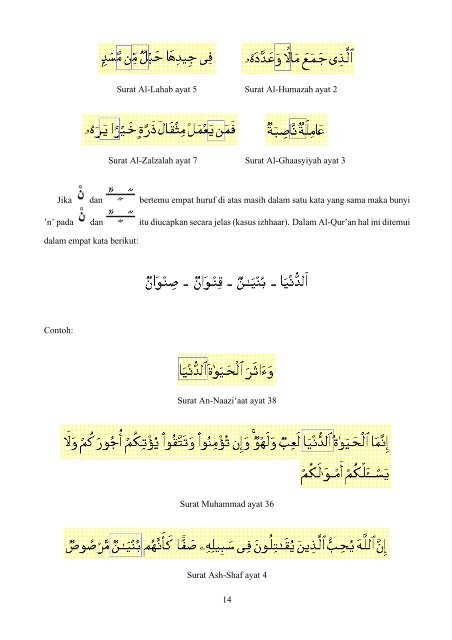 فِى جِيدِهَا حَبْلٌ مِّن مَّسَدٍ ٱلَّذِى جَمَعَ مَالًا وَعَدَّدَهُۥ
Surat Al-Lahab ayat 5 Surat Al-Humazah ayat 2
فَمَن يَعْمَلْ مِثْقَالَ ذَرَّةٍ خَيْرًا يَرَهُۥ عَامِلَةٌ نَّاصِبَةٌ
Surat Al-Zalzalah ayat 7 Surat Al-Ghaasyiyah ayat 3
Jika نْ dan ـٌـ ـًـ ـٍـ bertemu empat huruf di atas masih dalam satu kata yang sama maka bunyi
’n’ pada نْ dan ـٌـ ـًـ ـٍـ itu diucapkan secara jelas (kasus izhhaar). Dalam Al-Qur’an hal ini ditemui
dalam empat kata berikut:
ٱلدُّنْيَا - بُنْيَـٰنٌ - قِنْوَانٌ - صِنْوَانٌ
Contoh:
وَءَاثَرَ ٱلْحَيَوٰةَ ٱلدُّنْيَا
Surat An-Naazi‘aat ayat 38
إِنَّمَا ٱلْحَيَوٰةُ ٱلدُّنْيَا لَعِبٌ وَلَهْوٌ ۚ وَإِن تُؤْمِنُوا۟ وَتَتَّقُوا۟ يُؤْتِكُمْ أُجُورَكُمْ وَلَا
يَسْـَٔلْكُمْ أَمْوَٰلَكُمْ
Surat Muhammad ayat 36
إِنَّ ٱللَّهَ يُحِبُّ ٱلَّذِينَ يُقَـٰتِلُونَ فِى سَبِيلِهِۦ صَفًّا كَأَنَّهُم بُنْيَـٰنٌ مَّرْصُوصٌ
Surat Ash-Shaf ayat 4
14